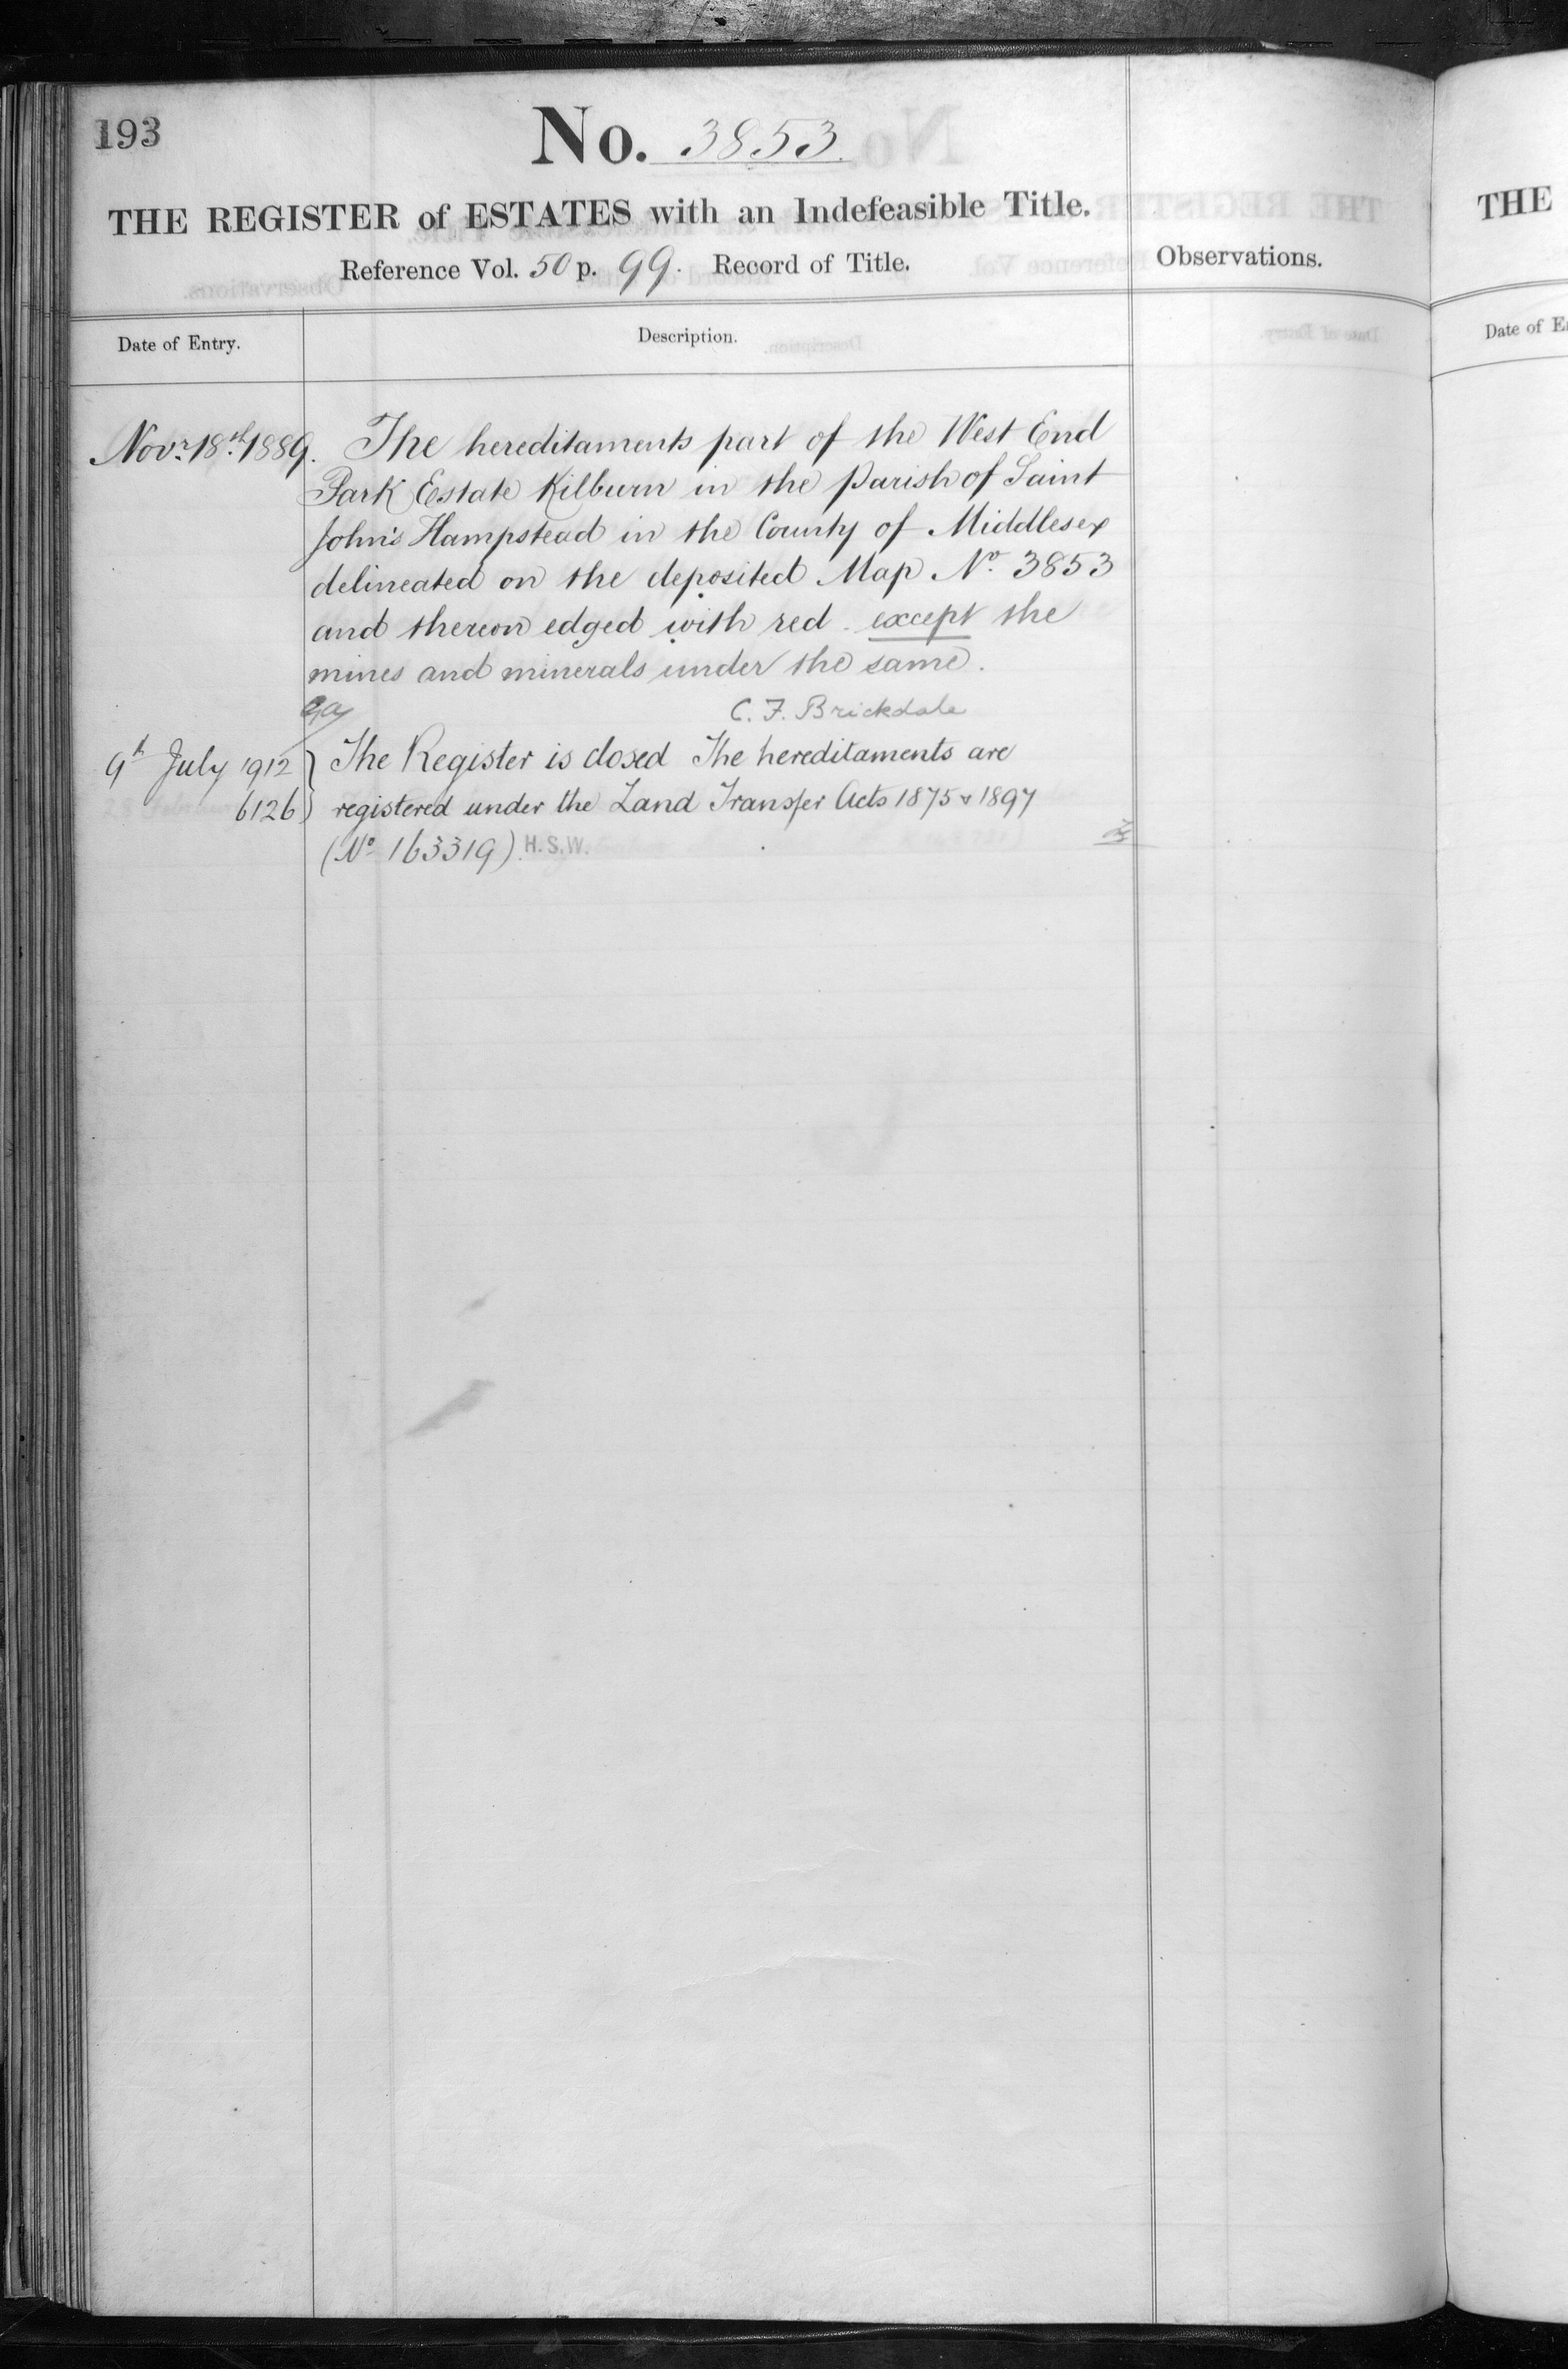 193
No. 3853.
THE REGISTER of ESTATES with an Indefeasible Title.
Reference Vol. 50 p. 99. Record of Title.
Observations.
THE
Date of Entry.
Description.
Date of E
Novr. 18th. 1889. The hereditaments part of the West End
Park Estate Kilburn in the Parish of Saint
John's Hampstead in the County of Middlesex
delineated on the deposited Map No. 3853
and thereon edged with red except the
mines and minerals under the same.
C. F. Brickdale
9th July 1912 } The Register is closed The hereditaments are
6126 registered under the Land Transfer Acts 1875 & 1897
(No 163319) H.S.W.